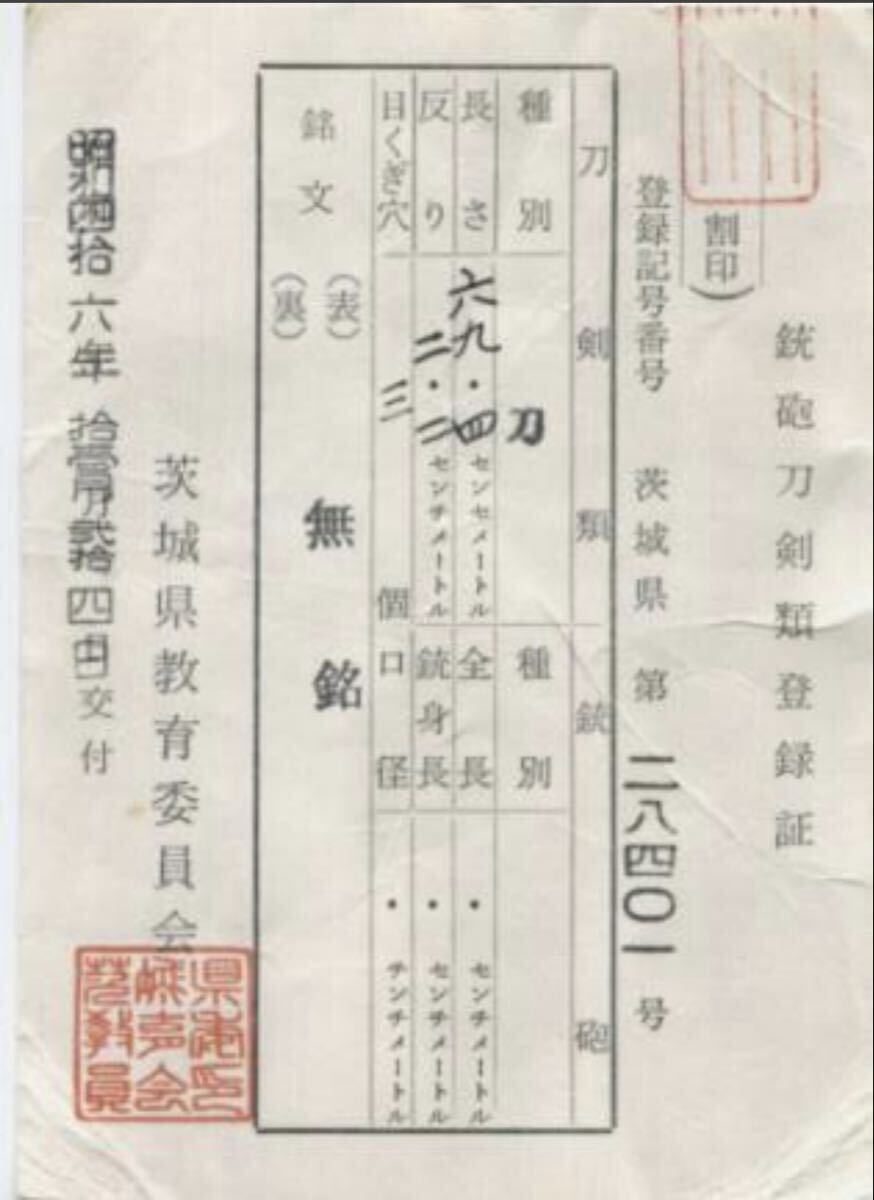 銃砲刀剣類登録証
(割印)
登録記号番号 茨城県 第 二八四〇一 号
刀剣類
種別 刀
長さ 六九・四 センセメートル
反り 二・二 センチメートル
目くぎ穴 三 個
銃砲
種別
全長 ・ センチメートル
銃身長 ・ センチメートル
口径 ・ チンチメートル
銘文 (表) 無銘
(裏)
茨城県教育委員会
昭和四拾六年拾壱月弐拾四日交付